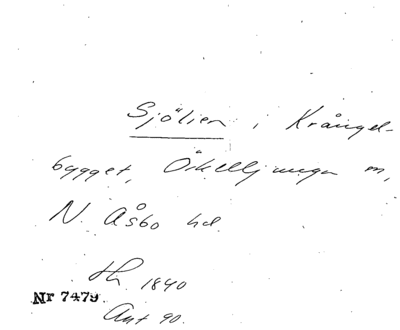 Sjölien i Krångel-
bygget, Örkelljunga m,
N. Åsbo hd
Hn 1840
Nr 7479.
Ant 90.